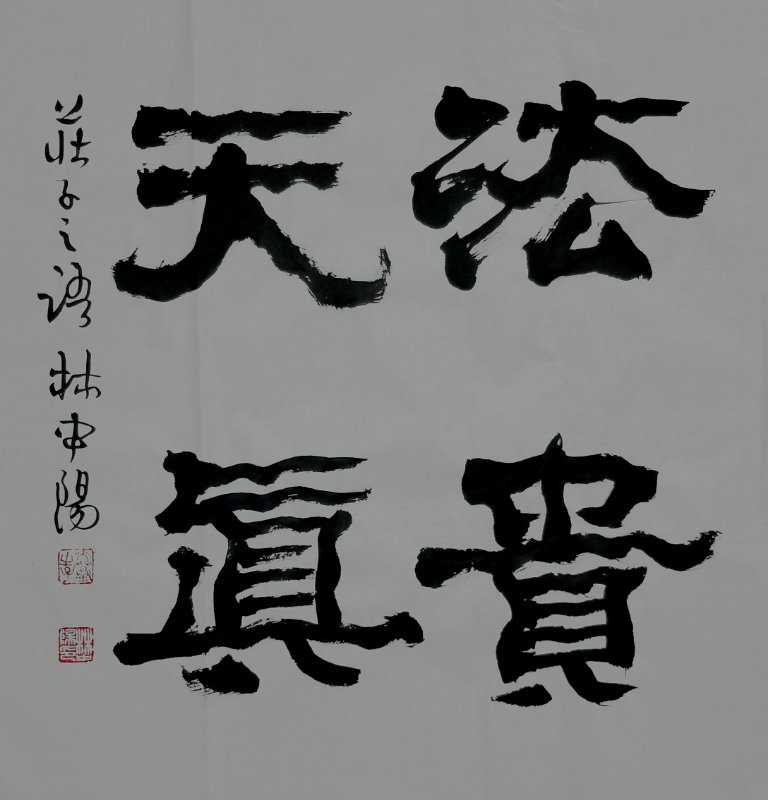 法貴
天真
莊子之語 林中陽